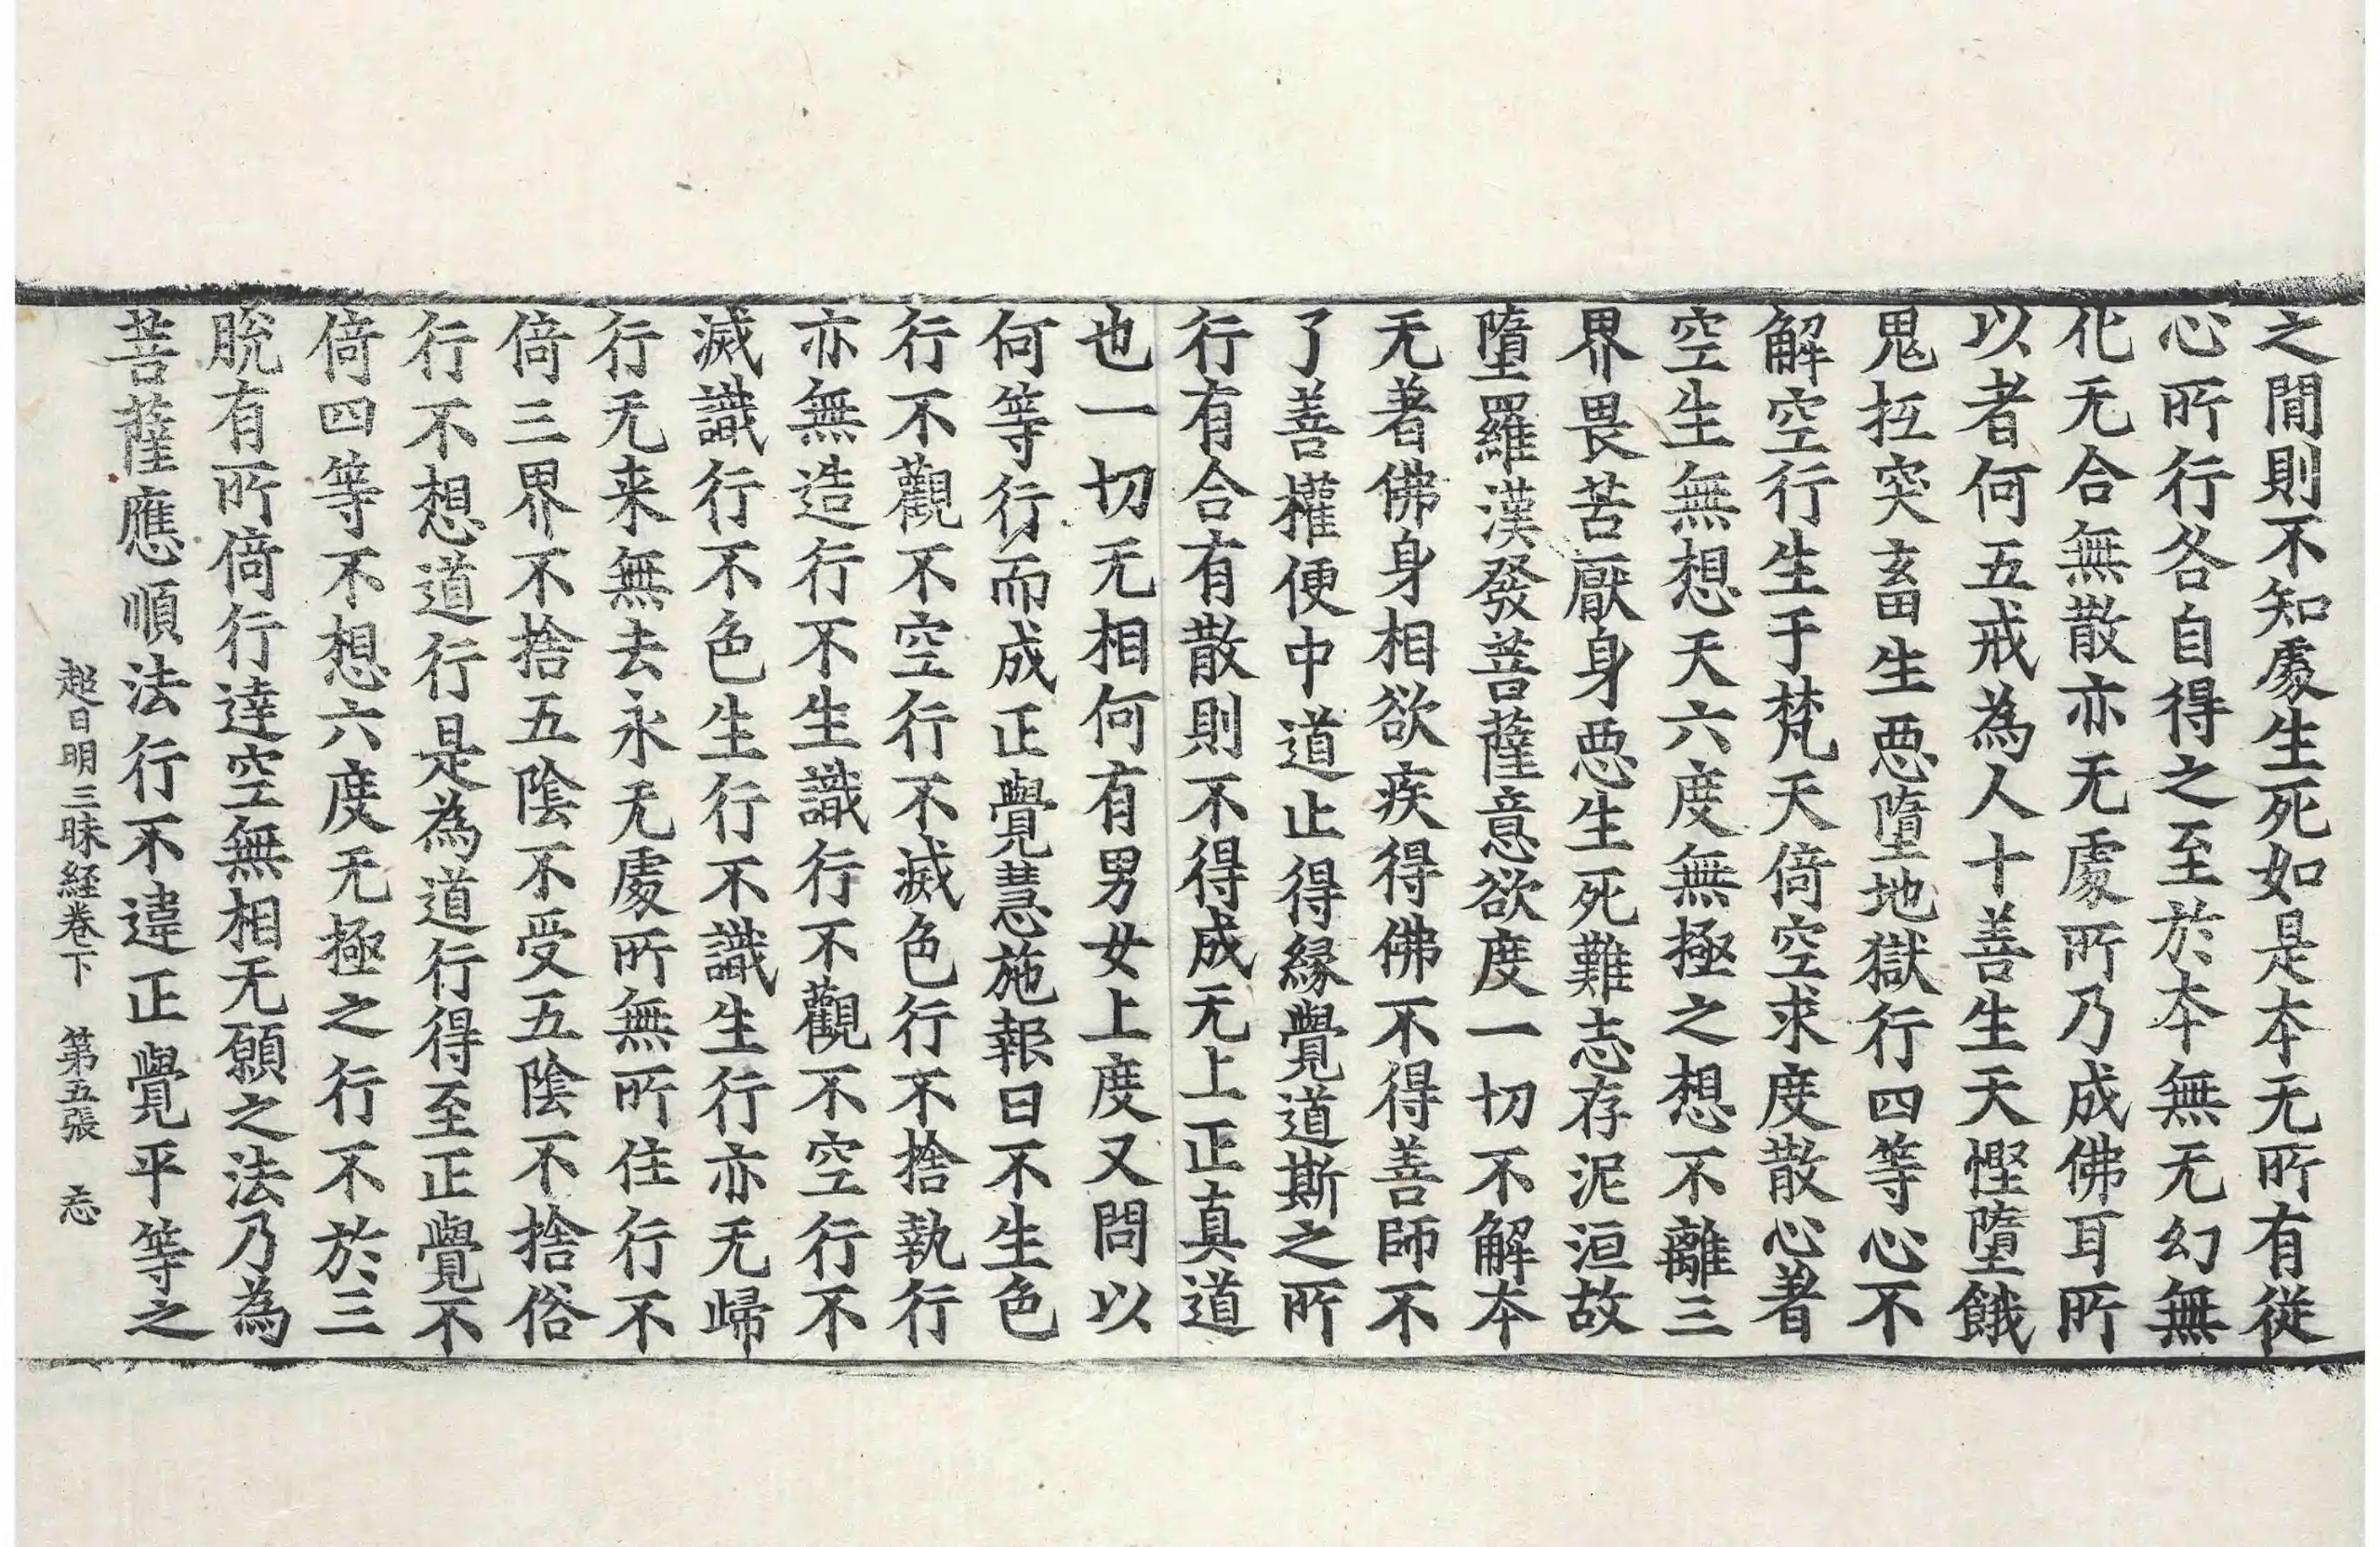 之閒則不知處生死如是本无所有従
心所行各自得之至於本無无幻無
化无合無散亦无處所乃成佛耳所
以者何五戒為人十善生天慳墮餓
鬼抂突畜生惡墮地獄行四等心不
解空行生于梵天倚空求度散心著
空生無想天六度無極之想不離三
界畏苦厭身惡生死難志存泥洹故
墮羅漢發菩薩意欲度一切不解本
无著佛身相欲疾得佛不得善師不
了善權便中道止得縁覺道斯之所
行有合有散則不得成无上正真道
也一切无相何有男女上度又問以
何等行而成正覺慧施報曰不生色
行不觀不空行不滅色行不捨執行
亦無造行不生識行不觀不空行不
滅識行不色生行不識生行亦无歸
行无来無去永无處所無所住行不
倚三界不捨五陰不受五陰不捨俗
行不想道行是為道行得至正覺不
倚四等不想六度无極之行不於三
脫有所倚行達空無相无願之法乃為
菩薩應順法行不違正覺平等之
超日明三昧経卷下　第五張　忘